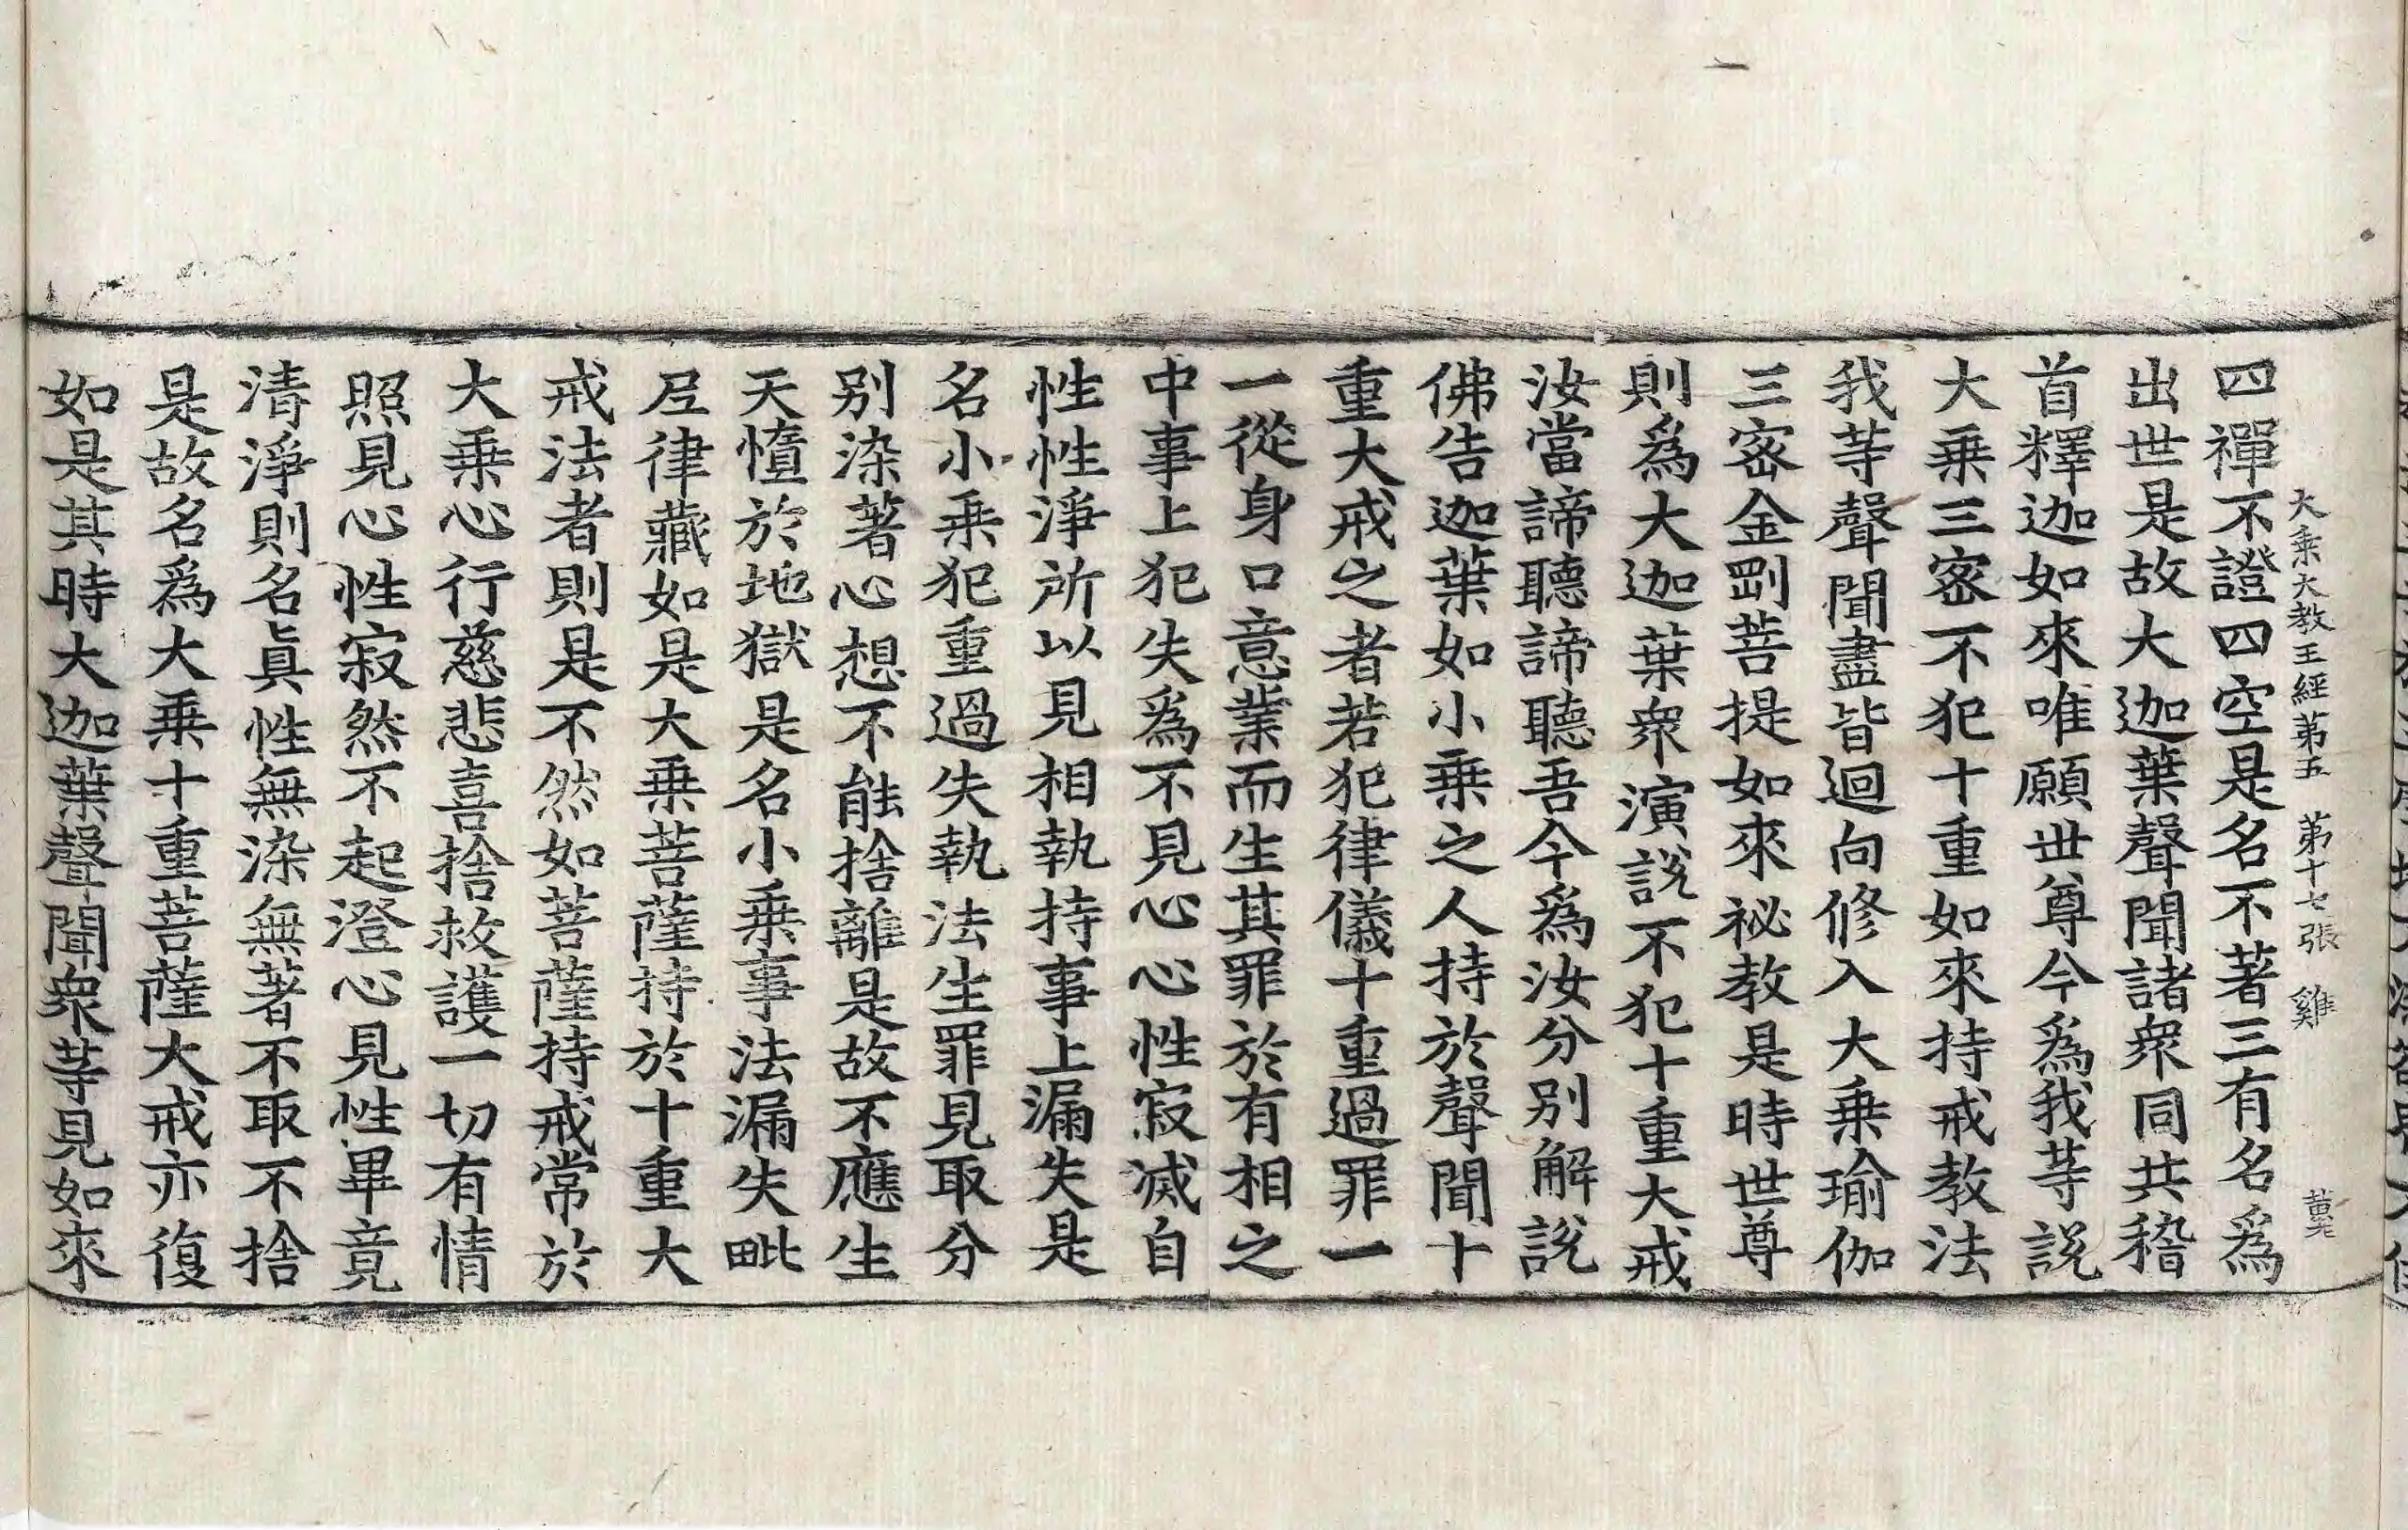 大乘大教王經第五　第十七張　雞
四禪不證四空是名不著三有名爲
出世是故大迦葉聲聞諸衆同共稽
首釋迦如來唯願世尊今爲我等說
大乘三密不犯十重如來持戒教法
我等聲聞盡皆迴向修入大乘瑜伽
三密金剛菩提如來祕教是時世尊
則爲大迦葉衆演說不犯十重大戒
汝當諦聽諦聽吾今爲汝分別解說
佛告迦葉如小乘之人持於聲聞十
重大戒之者若犯律儀十重過罪一
一從身口意業而生其罪於有相之
中事上犯失爲不見心心性寂滅自
性性淨所以見相執持事上漏失是
名小乘犯重過失執法生罪見取分
別染著心想不能捨離是故不應生
天憻於地獄是名小乘事法漏失毗
尼律藏如是大乘菩薩持於十重大
戒法者則是不然如菩薩持戒常於
大乘心行慈悲喜捨救護一切有情
照見心性寂然不起澄心見性畢竟
清淨則名眞性無染無著不取不捨
是故名爲大乘十重菩薩大戒亦復
如是其時大迦葉聲聞衆等見如來